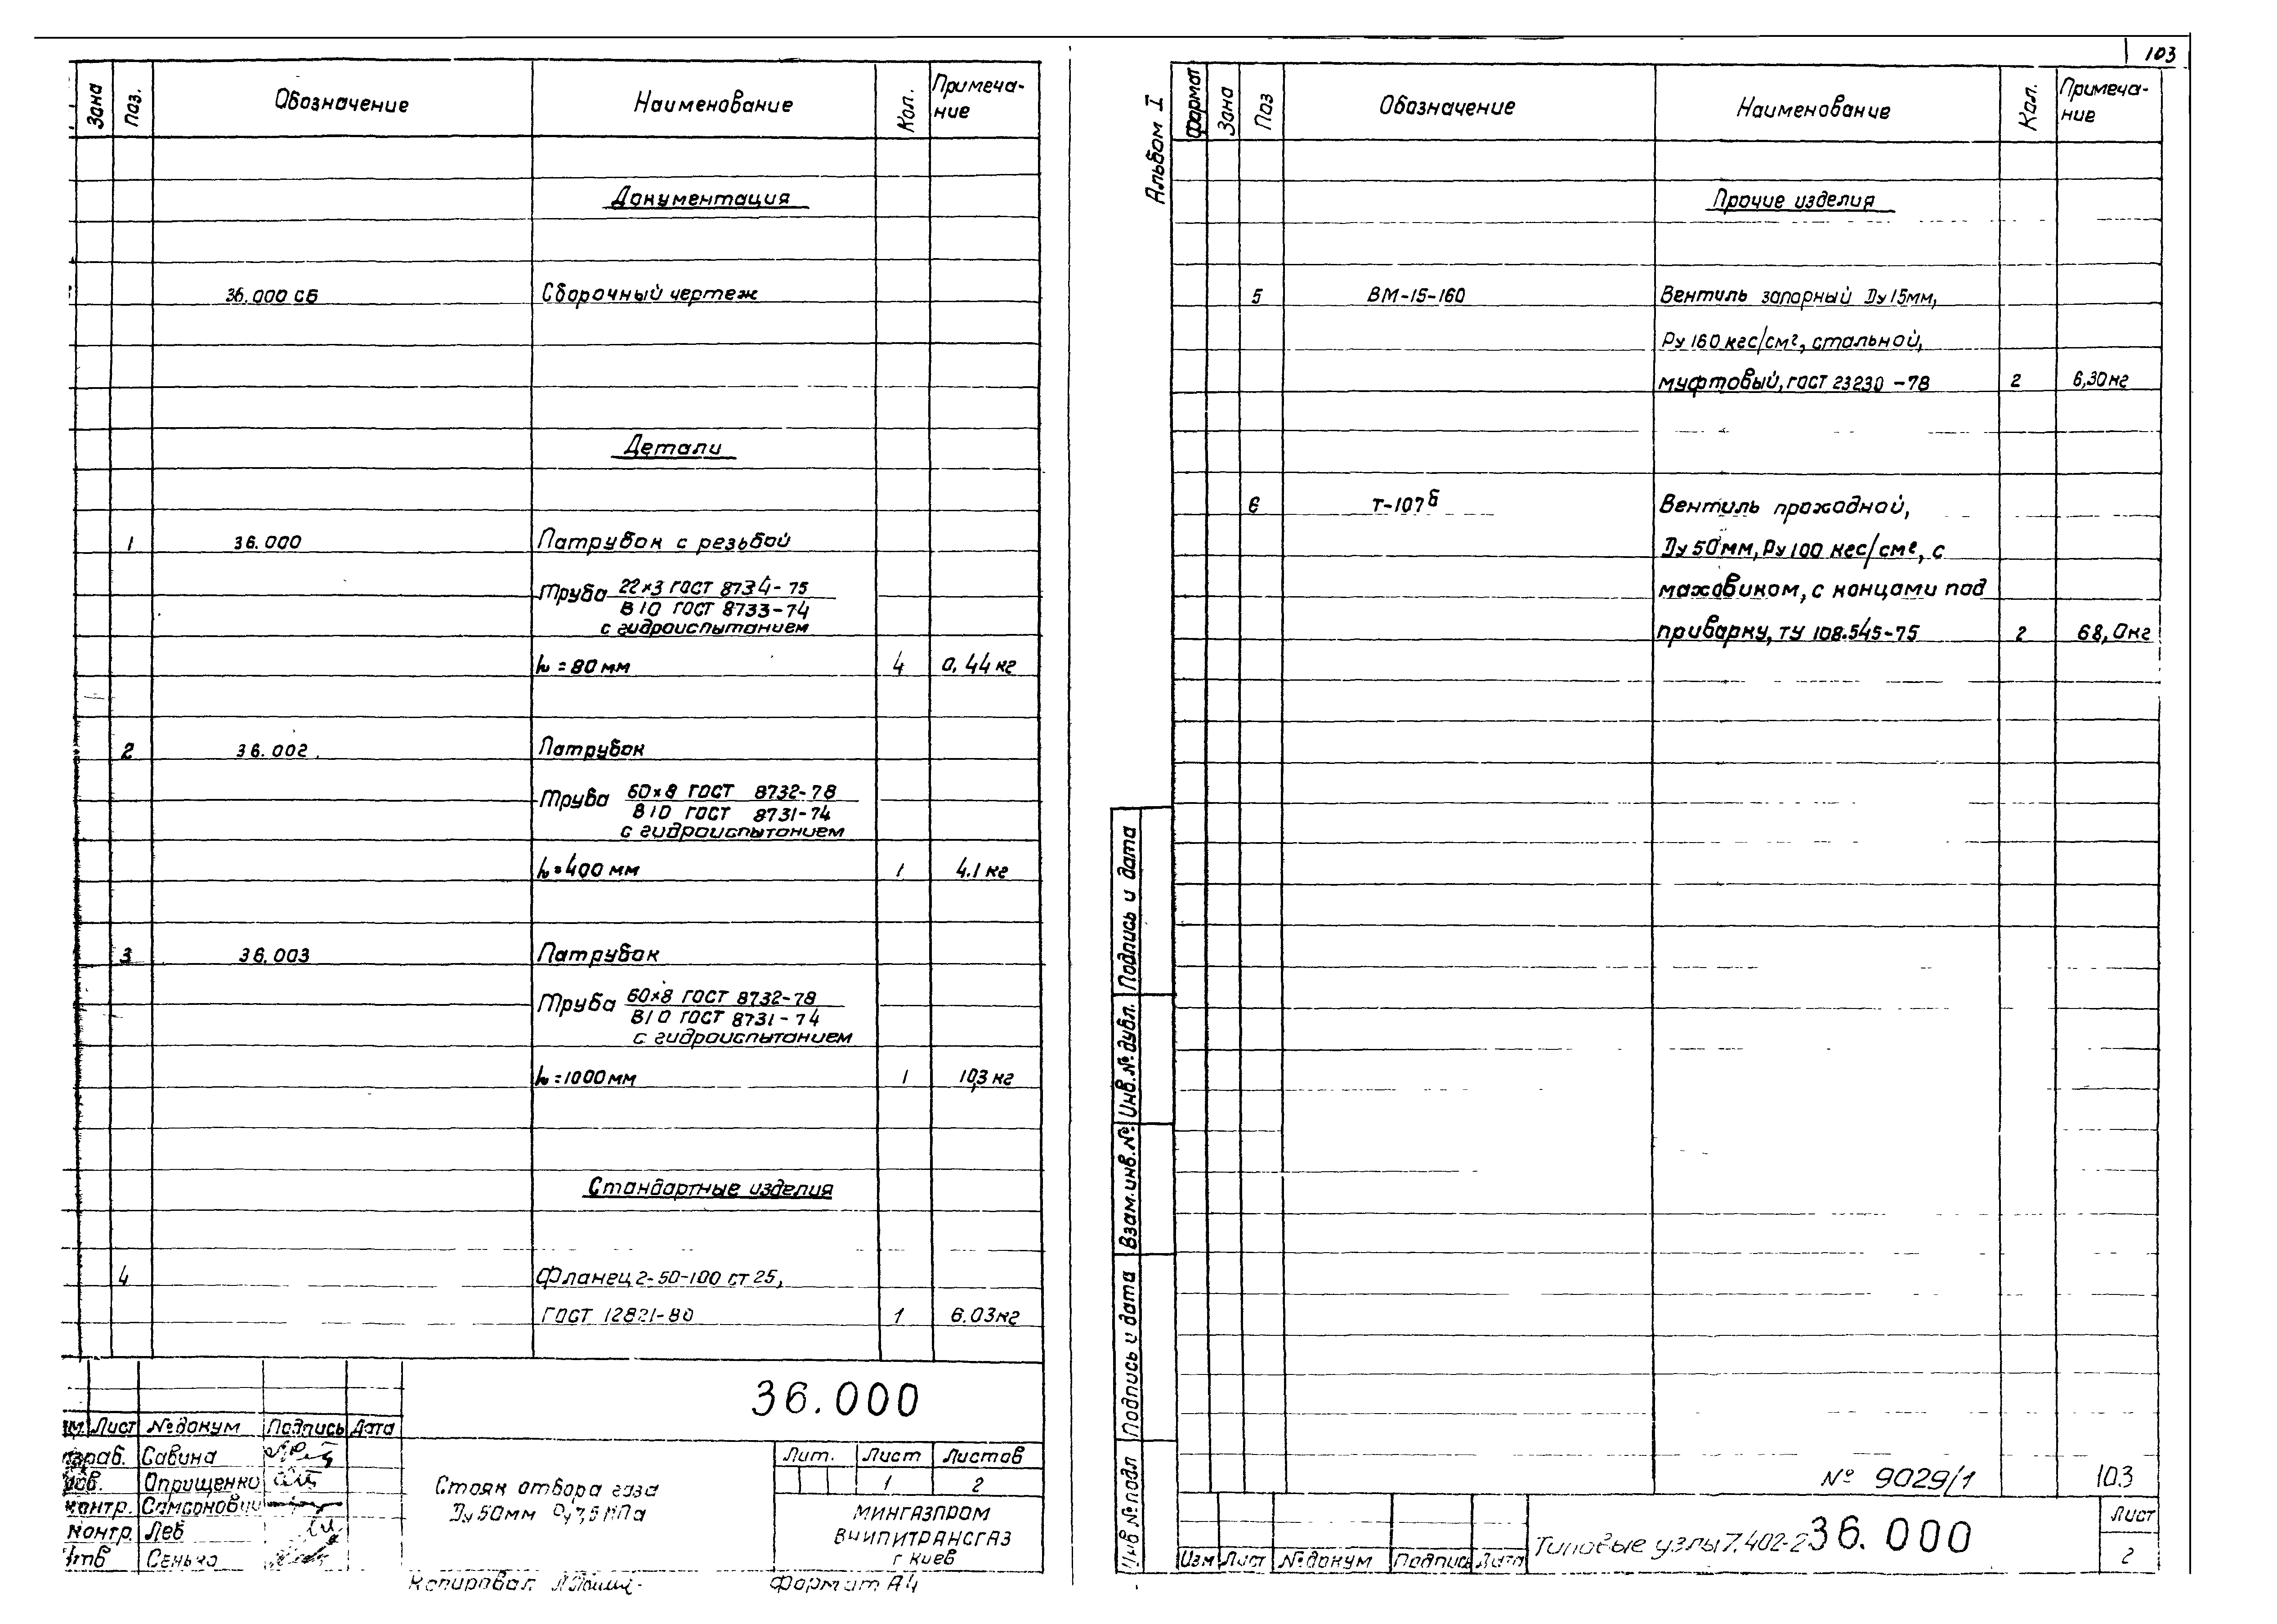 Зона Поз. Обозначение Наименование Кол. Примеча-
ние
Документация
36.000 СБ Сборочный чертеж
Детали
1 36.000 Патрубок с резьбой
Труба 22×3 ГОСТ 8734-75
В10 ГОСТ 8733-74
с гидроиспытанием
h=80 мм 4 0,44 кг
2 36.002 Патрубок
Труба 60×8 ГОСТ 8732-78
В10 ГОСТ 8731-74
с гидроиспытанием
h=400 мм 1 4.1 кг
3 36.003 Патрубок
Труба 60×8 ГОСТ 8732-78
В10 ГОСТ 8731-74
с гидроиспытанием
h=1000 мм 1 10,3 кг
Стандартные изделия
4 Фланец 2-50-100 ст 25,
ГОСТ 12821-80 1 6.03 кг
36.000
Лист № докум Подпись Дата
Савина
Оприщенко
контр. Самсонович
контр. Лев
Утв Сенько
Стояк отбора газа
Ду 50мм Ру 7,5 МПа
Лит. Лист Листов
1 2
МИНГАЗПРОМ
ВНИПИТРАНСГАЗ
г Киев
Копировал
Формат А4
103
Альбом I
Формат Зона Поз Обозначение Наименование Кол. Примеча-
ние
Прочие изделия
5 ВМ-15-160 Вентиль запорный Ду 15мм,
Ру 160 кгс/см², стальной,
муфтовый, ГОСТ 23230-78 2 6,30 кг
6 Т-107б Вентиль проходной,
Ду 50 мм, Ру 100 кгс/см², с
маховиком, с концами под
приварку, ТУ 108.545-75 2 68,0 кг
Подпись и дата
Инв.№ дубл.
Взам.инв.№
Подпись и дата
Инв № подл
№ 9029/1 103
Изм Лист № докум Подпись Дата
Типовые узлы 7.402-2 36.000
Лист
2